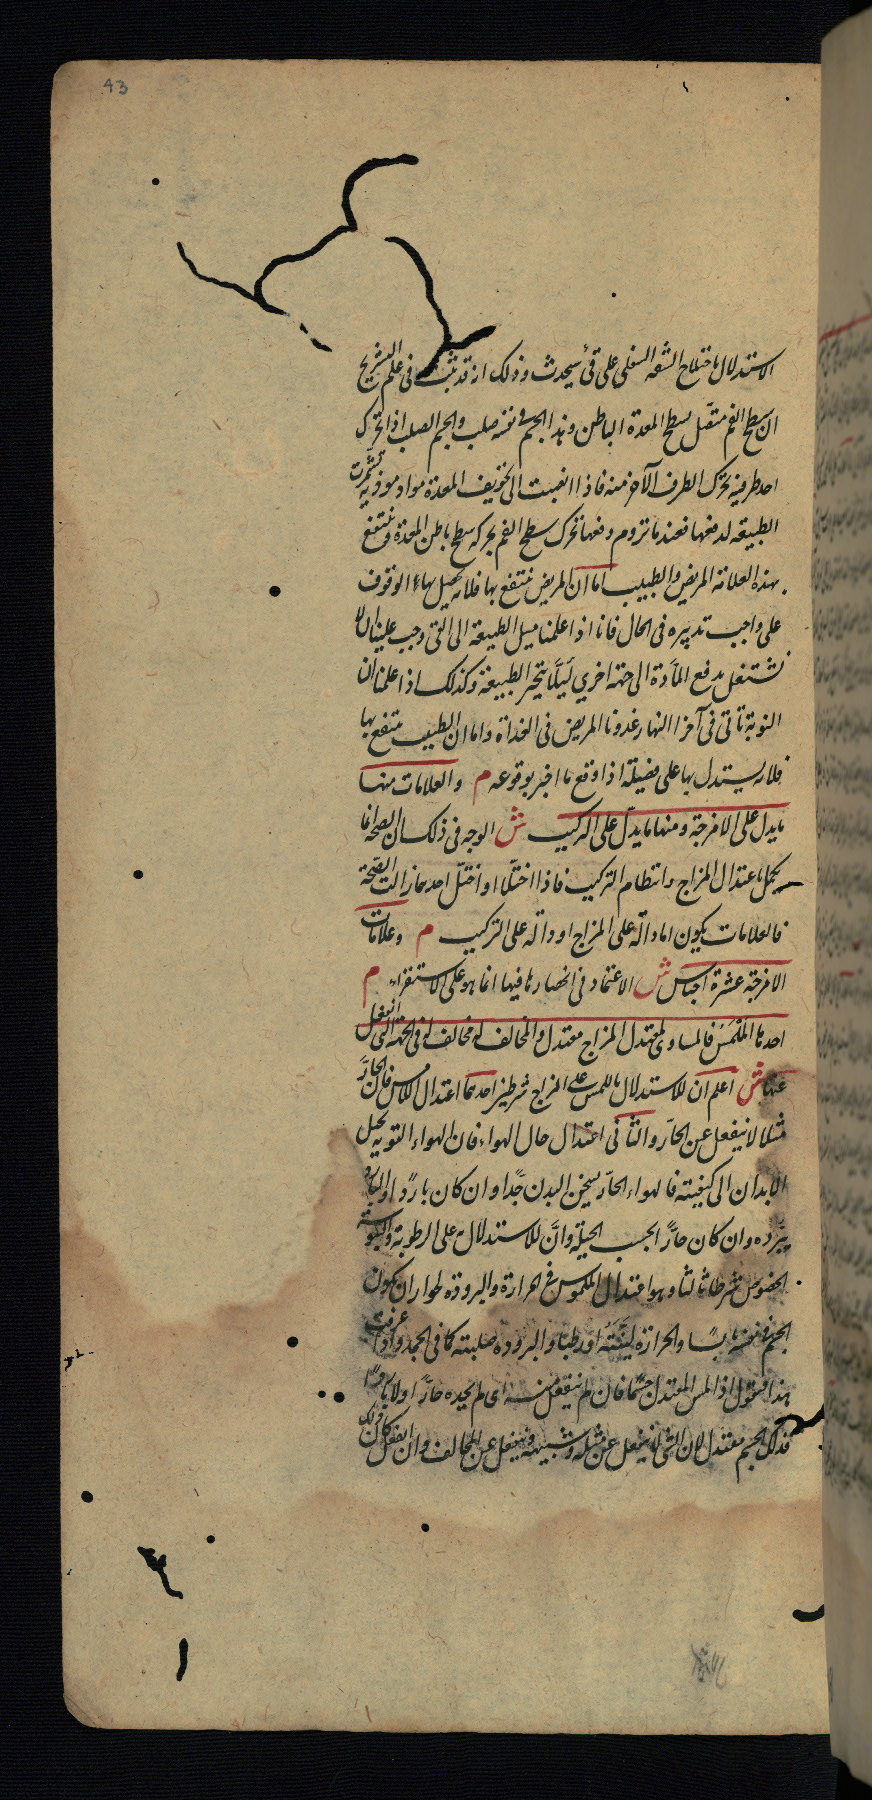 43
الاستدلال باختلاج الشفه السفلى على قئ سيحدث وذلك انه قد ثبت فى علم التشريح
ان سطح الفم متصل بسطح المعدة الباطن وهذا الجسم فى نفسه صلب والجسم الصلب اذا تحرك
احد طرفيه تحرك الطرف الآخر منه فاذا انصبت الى تجويف المعدة مواد موذية تشمرت
الطبيعه لدفعها فعند ما تروم دفعها تحرك سطح الفم بحركه سطح باطن المعدة وينتفع
بهذه العلامة المريض والطبيب اما ان المريض ينتفع بها فلانه يحصل بها الوقوف
على واجب تدبيره فى الحال فانا اذا علمنا ميل الطبيعة الى القئ وجب علينا ان لا
نشتغل بدفع المادة الى جهة اخرى ليلا يتحير الطبيعة وكذلك اذا علمنا ان
النوبة تاتى فى آخر النهار غدونا المريض فى الغداة واما ان الطبيب ينتفع بها
فلانه يستدل بها على فضيلته اذا وقع ما اخبر بوقوعه م والعلامات منها
ما يدل على الامزجة ومنها ما يدل على التركيب ش الوجه فى ذلك ان الصحه انما
يكمل باعتدال المزاج وانتظام التركيب فاذا اختلا او اختل احدهما زالت الصحة
فالعلامات يكون اما دالة على المزاج او دالة على التركيب م وعلامات
الامزجة عشرة اجناس ش الاعتماد فى انحصارها فيها انما هو على الاستقراء م
احدها الملمس فالمساوى لمعتدل المزاج معتدل والمخالف له مخالف له فى الجهة التى انفعل
عنها ش اعلم ان للاستدلال باللمس على المزاج شرطين احدهما اعتدال اللامس فان الحار
مثلا لا ينفعل عن الحار والثانى اعتدال حال الهواء فان الهواء القوى يحيل
الابدان الى كيفيته فالهواء الحار يسخن البدن جدا وان كان باردا والبارد
يبرده وان كان حارا بحسب الجبلة وان للاستدلال على الرطوبة واليبوسة
بالخصوص شرطا ثالثا وهو اعتدال الملموس فى الحرارة والبرودة لجواز ان يكون
الجسم فى نفسه يابسا والحرارة لينته او رطبا والبرودة صلبته كما فى الجمد واذا عرفت
هذا فنقول اذا لمس المعتدل جسما فان لم ينفعل منه اى لم يجده حارا ولا باردا
فذلك الجسم معتدل لان الشئ لا ينفعل عن مثله وشبيهه وينفعل عن المخالف وان انفعل كان ذلك